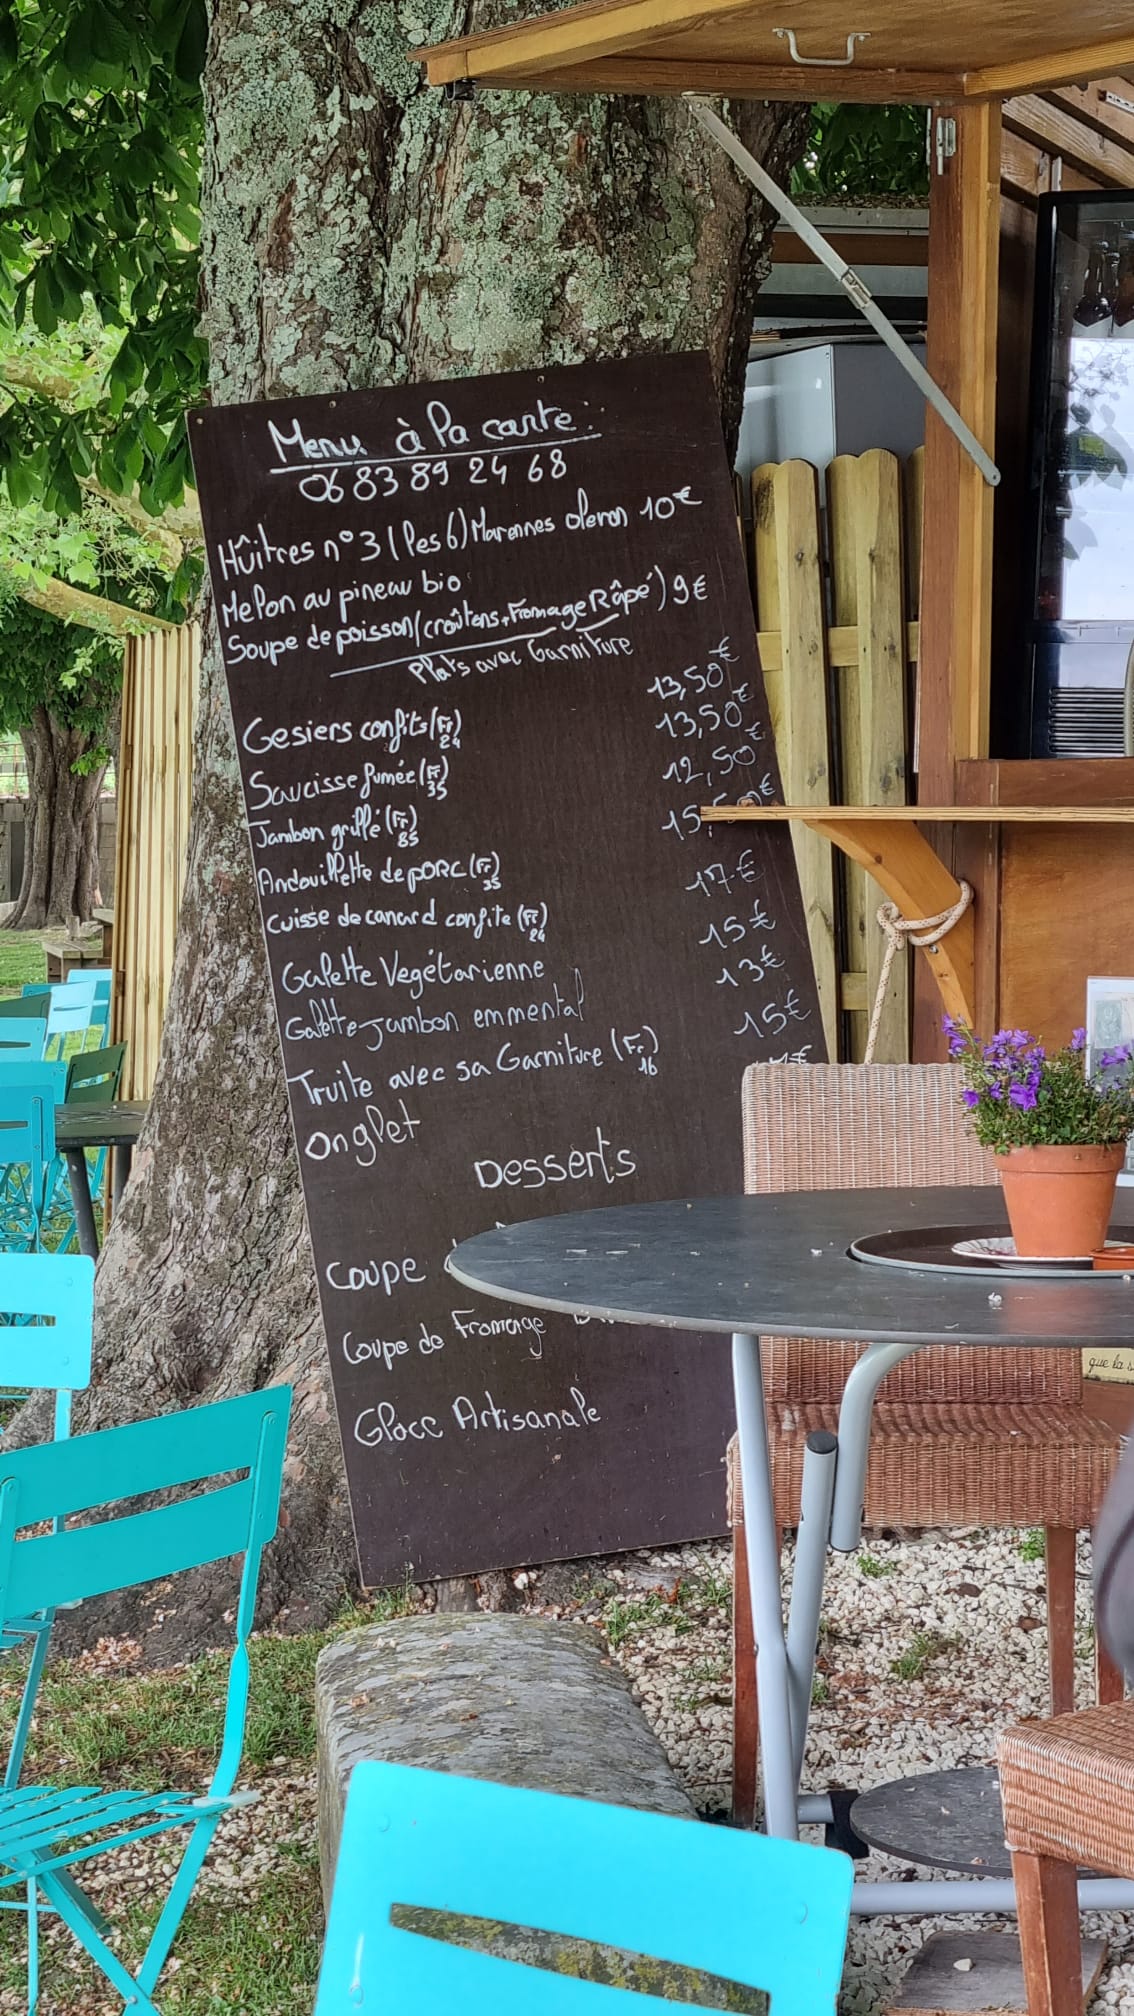 Menu à la carte :
06 83 89 24 68
Hûitres n°3 (les 6) Marennes oleron 10€
Melon au pineau bio
Soupe de poisson (croûtons, Fromage Râpé) 9€
Plats avec Garniture
Gesiers confits (Fr 24) 13,50€
Saucisse fumée (Fr 35) 13,50€
Jambon grillé (Fr 85) 12,50€
Andouillette de PORC (Fr 35)
Cuisse de canard confite (Fr 24) 17€
Galette Vegétarienne 15€
Galette Jambon emmental 13€
Truite avec sa Garniture (Fr 16) 15€
Onglet
Desserts
Coupe
Coupe de Fromage
Glace Artisanale
que la